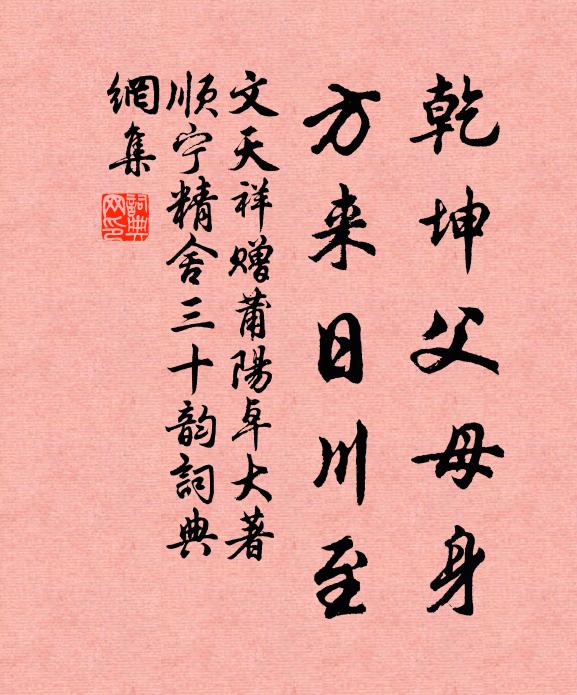 乾坤父母身
方来日川至
文天祥赠莆陽卓大著
順宁精舍三十韵詞典
網集
詞典网印